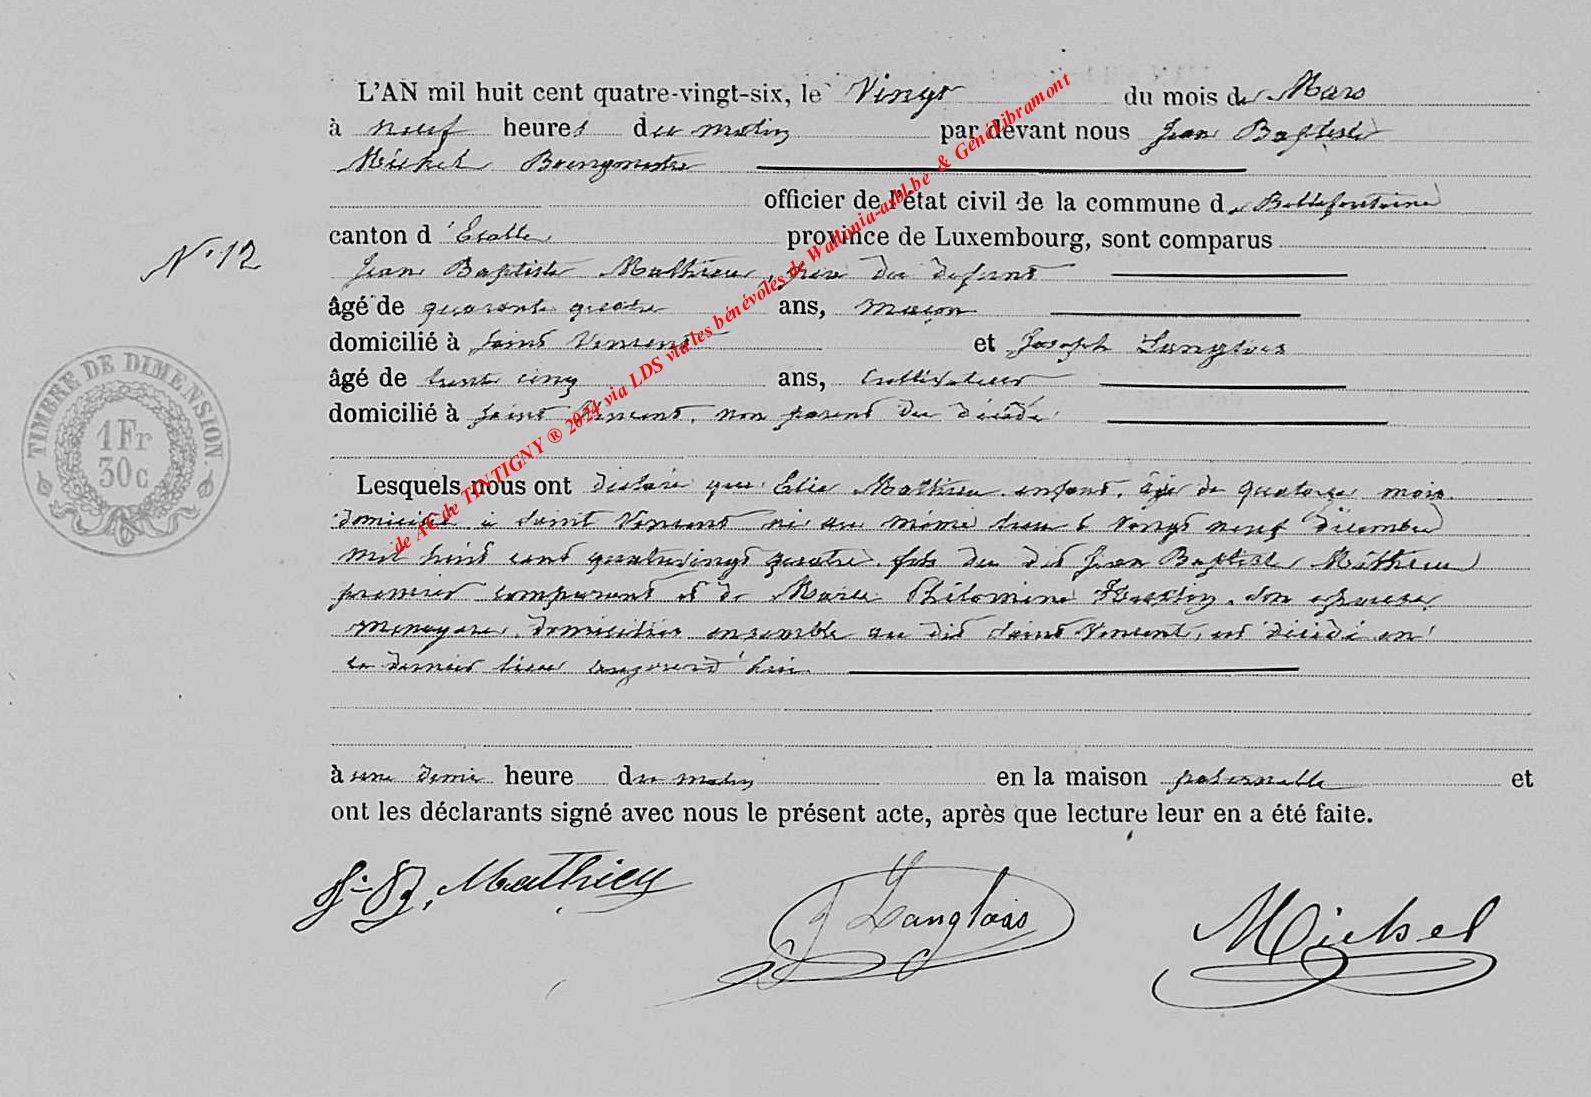 L'AN mil huit cent quatre-vingt-six, le Vingt du mois de Mars
à neuf heures du matin par devant nous Jean Baptiste
Michel Bourgmestre
officier de l'état civil de la commune de Bellefontaine
N° 12
canton d'Etalle province de Luxembourg, sont comparus
Jean Baptiste Mathieu, père du défunt
âgé de quarante quatre ans, maçon
domicilié à Saint Vincent et Joseph Langlois
âgé de trente cinq ans, cultivateur
domicilié à Saint Vincent, non parent du décédé
TIMBRE DE DIMENSION.
1 Fr
30c
Lesquels nous ont déclaré que Elie Mathieu enfant, âgé de quatorze mois
domicilié à Saint Vincent né au même lieu le vingt neuf décembre
mil huit cent quatrevingt quatre fils du dit Jean Baptiste Mathieu
premier comparant et de Marie Philomène son épouse,
ménagère, domiciliés ensemble au dit Saint Vincent, est décédé en
ce dernier lieu aujourd'hui
à une demie heure du matin en la maison paternelle et
ont les déclarants signé avec nous le présent acte, après que lecture leur en a été faite.
J.-B. Mathieu
J Langlois
Michel
de AE de TINTIGNY ® 2024 via LDS via les bénévoles de Wallonia-asbl.be & GénéaLibramont